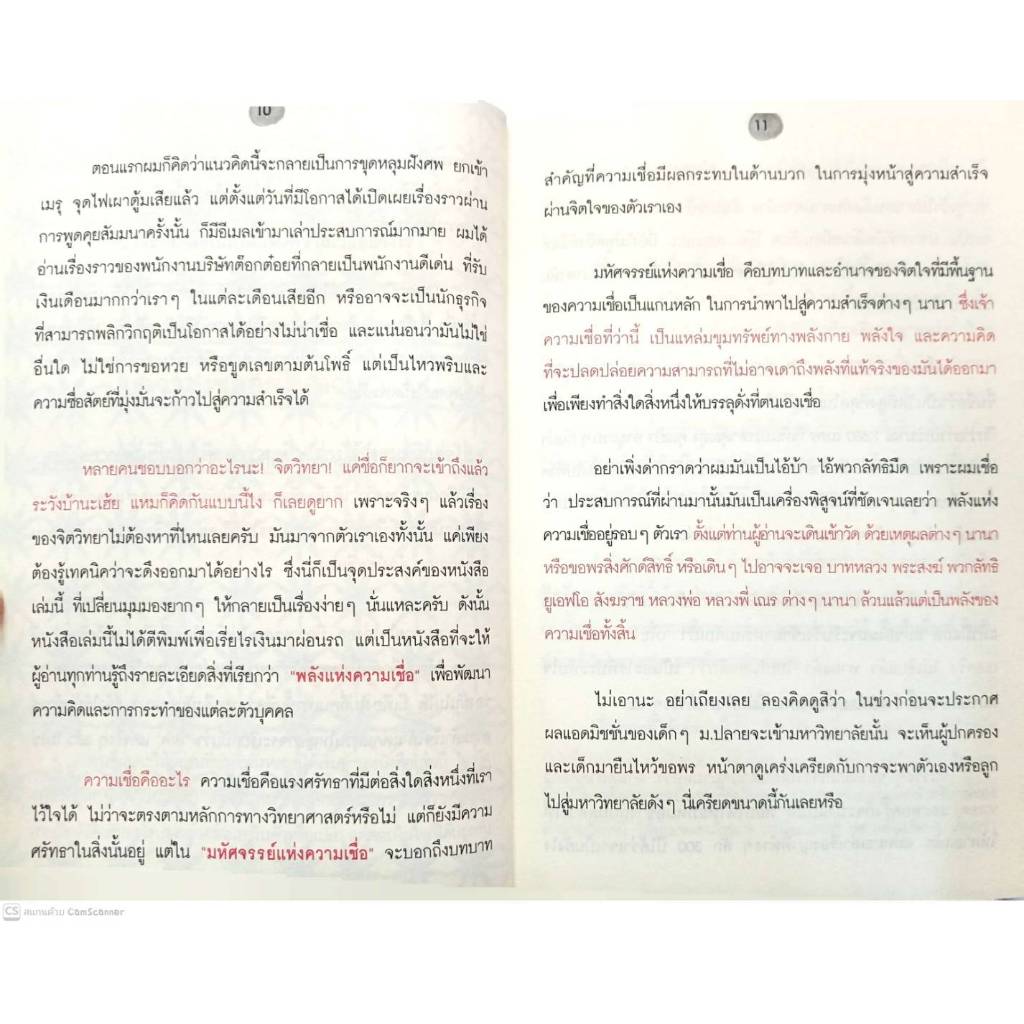 10
ตอนแรกผมก็คิดว่าแนวคิดนี้จะกลายเป็นการขุดหลุมฝังศพ ยกเข้า
เมรุ จุดไฟเผาตู้มเสียแล้ว แต่ตั้งแต่วันที่มีโอกาสได้เปิดเผยเรื่องราวผ่าน
การพูดคุยสัมมนาครั้งนั้น ก็มีอีเมลเข้ามาเล่าประสบการณ์มากมาย ผมได้
อ่านเรื่องราวของพนักงานบริษัทต๊อกต๋อยที่กลายเป็นพนักงานดีเด่น ที่รับ
เงินเดือนมากกว่าเราๆ ในแต่ละเดือนเสียอีก หรืออาจจะเป็นนักธุรกิจ
ที่สามารถพลิกวิกฤติเป็นโอกาสได้อย่างไม่น่าเชื่อ และแน่นอนว่ามันไม่ใช่
อื่นใด ไม่ใช่การขอหวย หรือขูดเลขตามต้นโพธิ์ แต่เป็นไหวพริบและ
ความซื่อสัตย์ที่มุ่งมั่นจะก้าวไปสู่ความสำเร็จได้
หลายคนชอบบอกว่าอะไรนะ! จิตวิทยา! แค่ชื่อก็ยากจะเข้าถึงแล้ว
ระวังบ้านะเฮ้ย แหมก็คิดกันแบบนี้ไง ก็เลยดูยาก เพราะจริงๆ แล้วเรื่อง
ของจิตวิทยาไม่ต้องหาที่ไหนเลยครับ มันมาจากตัวเราเองทั้งนั้น แค่เพียง
ต้องรู้เทคนิคว่าจะดึงออกมาได้อย่างไร ซึ่งนี่ก็เป็นจุดประสงค์ของหนังสือ
เล่มนี้ ที่เปลี่ยนมุมมองยากๆ ให้กลายเป็นเรื่องง่ายๆ นั่นแหละครับ ดังนั้น
หนังสือเล่มนี้ไม่ได้ตีพิมพ์เพื่อเรี่ยไรเงินมาผ่อนรถ แต่เป็นหนังสือที่จะให้
ผู้อ่านทุกท่านรู้ถึงรายละเอียดสิ่งที่เรียกว่า "พลังแห่งความเชื่อ" เพื่อพัฒนา
ความคิดและการกระทำของแต่ละตัวบุคคล
ความเชื่อคืออะไร ความเชื่อคือแรงศรัทธาที่มีต่อสิ่งใดสิ่งหนึ่งที่เรา
ไว้ใจได้ ไม่ว่าจะตรงตามหลักการทางวิทยาศาสตร์หรือไม่ แต่ก็ยังมีความ
ศรัทธาในสิ่งนั้นอยู่ แต่ใน "มหัศจรรย์แห่งความเชื่อ" จะบอกถึงบทบาท
11
สำคัญที่ความเชื่อมีผลกระทบในด้านบวก ในการมุ่งหน้าสู่ความสำเร็จ
ผ่านจิตใจของตัวเราเอง
มหัศจรรย์แห่งความเชื่อ คือบทบาทและอำนาจของจิตใจที่มีพื้นฐาน
ของความเชื่อเป็นแกนหลัก ในการนำพาไปสู่ความสำเร็จต่างๆ นานา ซึ่งเจ้า
ความเชื่อที่ว่านี้ เป็นแหล่มขุมทรัพย์ทางพลังกาย พลังใจ และความคิด
ที่จะปลดปล่อยความสามารถที่ไม่อาจเดาถึงพลังที่แท้จริงของมันได้ออกมา
เพื่อเพียงทำสิ่งใดสิ่งหนึ่งให้บรรลุดั่งที่ตนเองเชื่อ
อย่าเพิ่งด่ากราดว่าผมมันเป็นไอ้บ้า ไอ้พวกลัทธิมืด เพราะผมเชื่อ
ว่า ประสบการณ์ที่ผ่านมานั้นมันเป็นเครื่องพิสูจน์ที่ชัดเจนเลยว่า พลังแห่ง
ความเชื่ออยู่รอบๆ ตัวเรา ตั้งแต่ท่านผู้อ่านจะเดินเข้าวัด ด้วยเหตุผลต่างๆ นานา
หรือขอพรสิ่งศักดิ์สิทธิ์ หรือเดินๆ ไปอาจจะเจอ บาทหลวง พระสงฆ์ พวกลัทธิ
ยูเอฟโอ สังฆราช หลวงพ่อ หลวงพี่ เณร ต่างๆ นานา ล้วนแล้วแต่เป็นพลังของ
ความเชื่อทั้งสิ้น
ไม่เอานะ อย่าเถียงเลย ลองคิดดูสิว่า ในช่วงก่อนจะประกาศ
ผลแอดมิชชั่นของเด็กๆ ม.ปลายจะเข้ามหาวิทยาลัยนั้น จะเห็นผู้ปกครอง
และเด็กมายืนไหว้ขอพร หน้าตาดูเคร่งเครียดกับการจะพาตัวเองหรือลูก
ไปสู่มหาวิทยาลัยดังๆ นี่เครียดขนาดนี้กันเลยหรือ
CS สแกนด้วย CamScanner